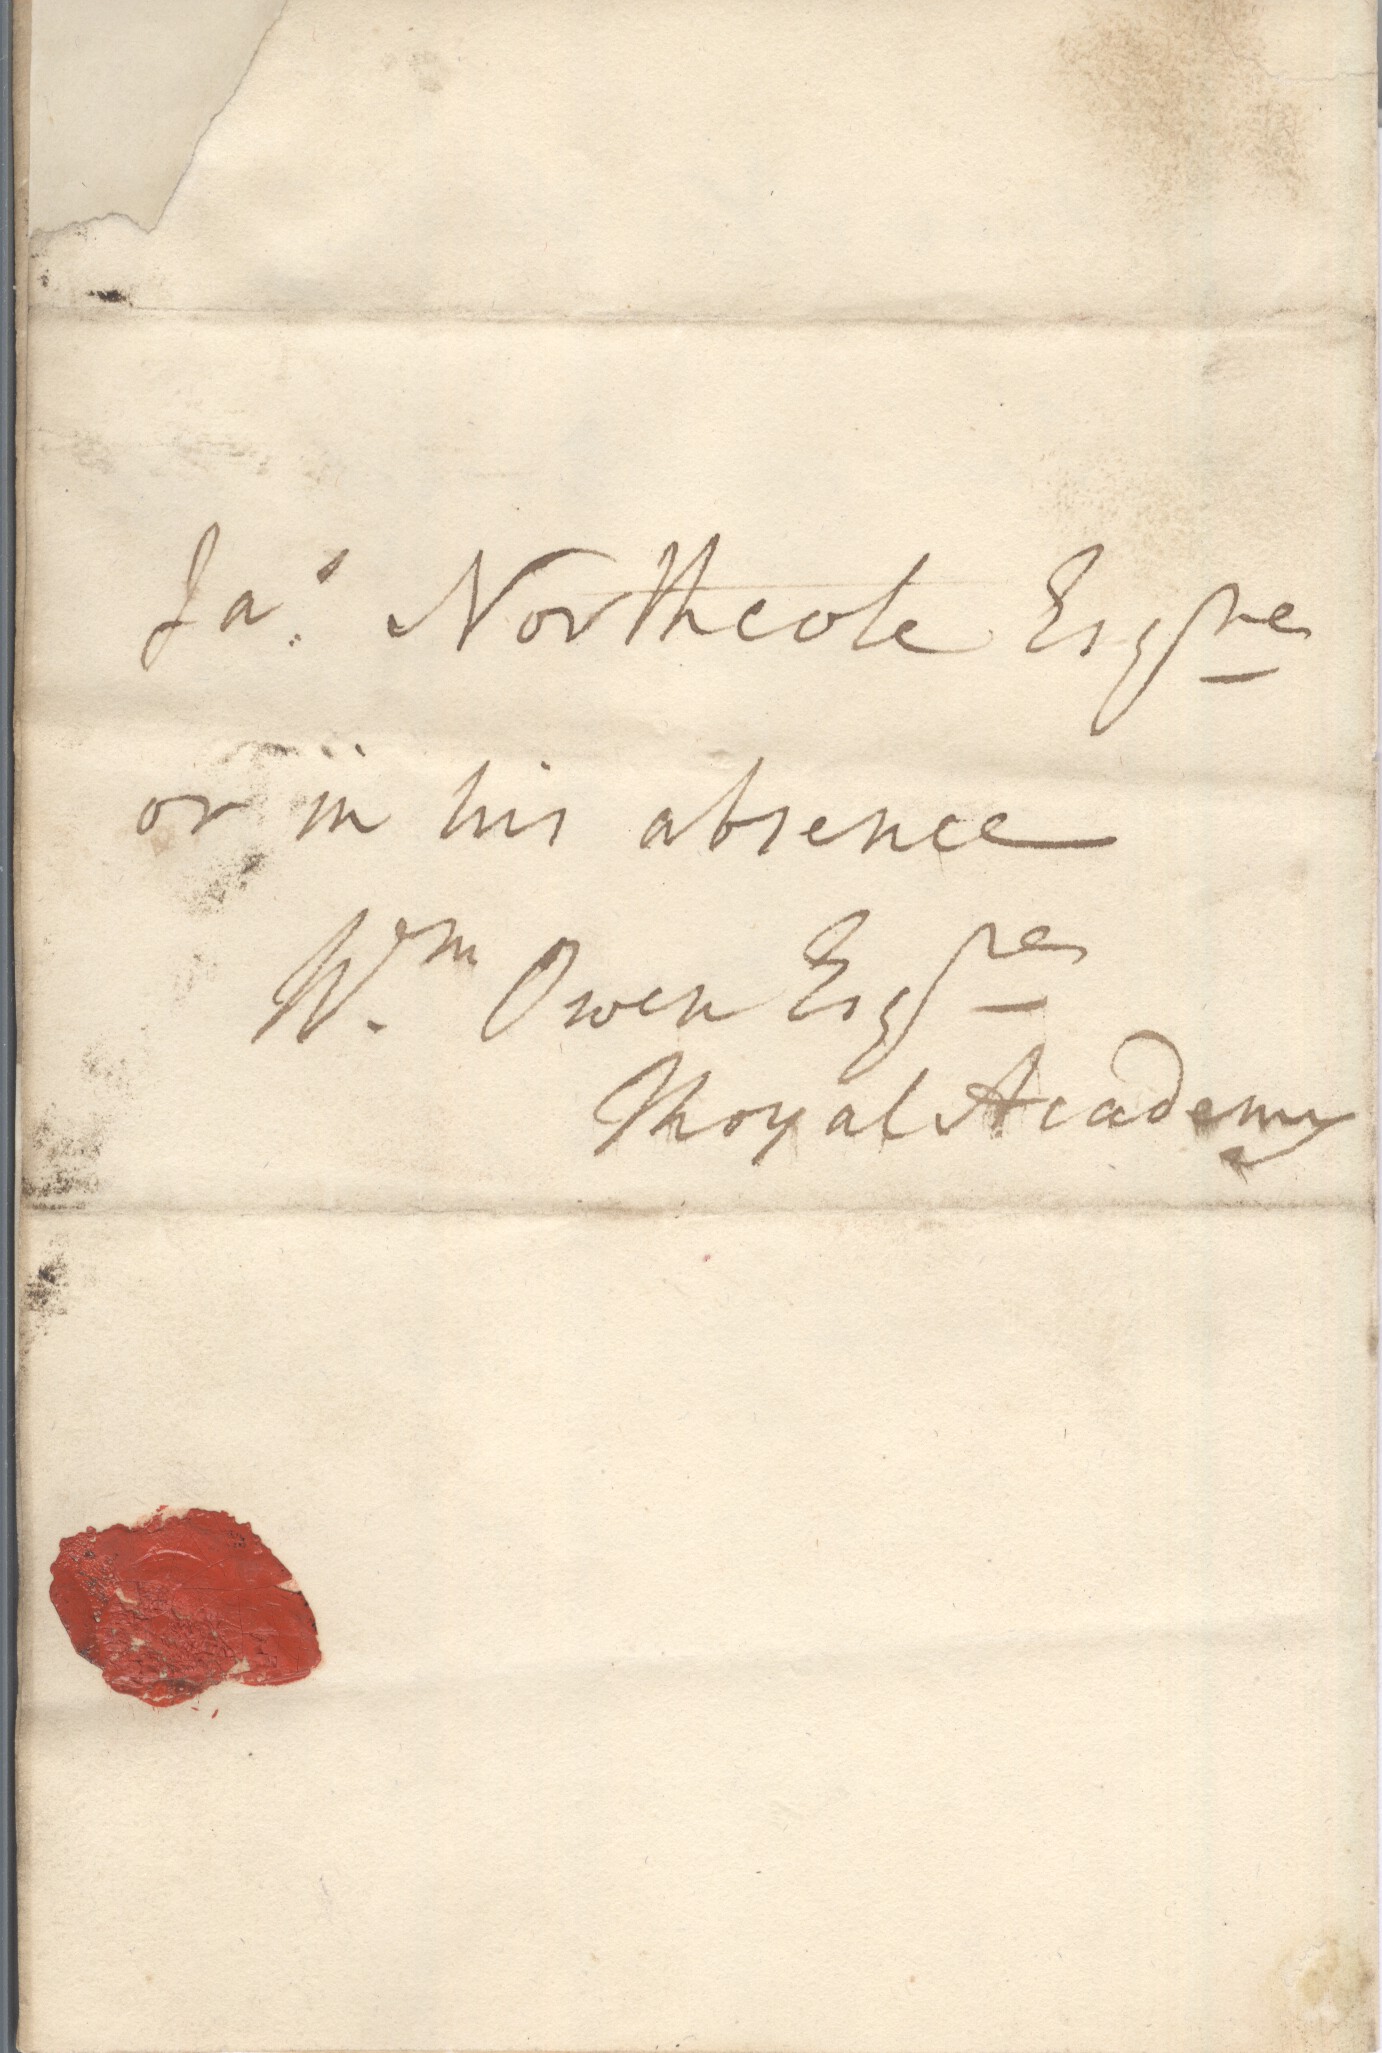 Jas. Northcote Esqre
or in his absence
Wm. Owen Esqre
Royal Academy